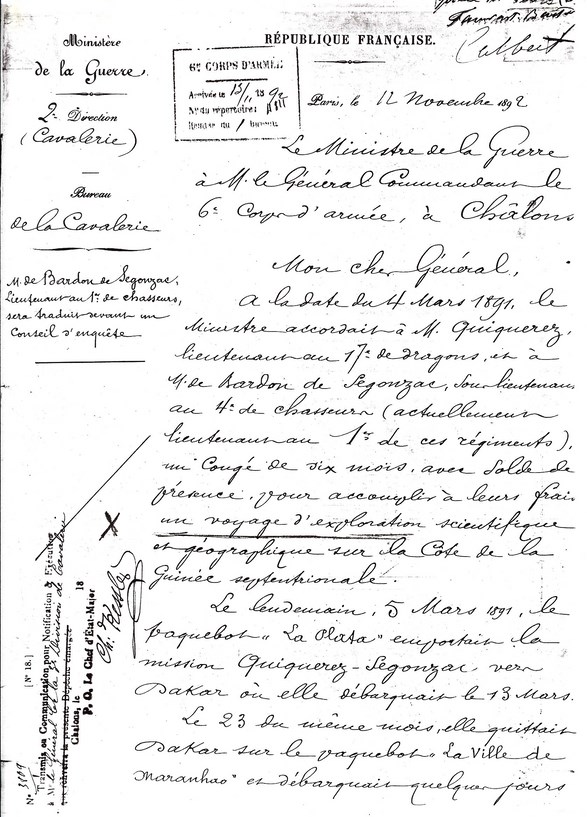 Ministère
de la Guerre.
2e Direction
(Cavalerie)
Bureau
de la Cavalerie
M. de Bardon de Segonzac,
Lieutenant au 1er de chasseurs,
sera traduit devant un
Conseil d'enquête
RÉPUBLIQUE FRANÇAISE.
6e CORPS D'ARMÉE
Arrivée le 13/11 1892
No du répertoire:
bureau
Paris, le 12 Novembre 1892
Le Ministre de la Guerre
à M. le Général Commandant le
6e Corps d'armée, à Châlons
Mon cher Général,
A la date du 4 Mars 1891, le
Ministre accordait à M. Quiquerez,
lieutenant au 17e de dragons, et à
M. de Bardon de Segonzac, sous-lieutenant
au 4e de chasseurs (actuellement
lieutenant au 1er de ces régiments),
un Congé de six mois, avec Solde de
présence, pour accomplir à leurs frais
un voyage d'exploration scientifique
et géographique sur la Côte de la
Guinée septentrionale.
Le lendemain, 5 Mars 1891, le
paquebot "La Plata" emportait la
mission Quiquerez-Segonzac vers
Dakar où elle débarquait le 13 Mars.
Le 23 du même mois, elle quittait
Dakar sur le paquebot "La Ville de
Maranhao" et débarquait quelques jours
[No 18.]
No 3309
Transmis en Communication pour Notification & Exécution
à Mr le Général Cdt la Division de Cavalerie
Châlons, le 18
P. O. Le Chef d'État-Major